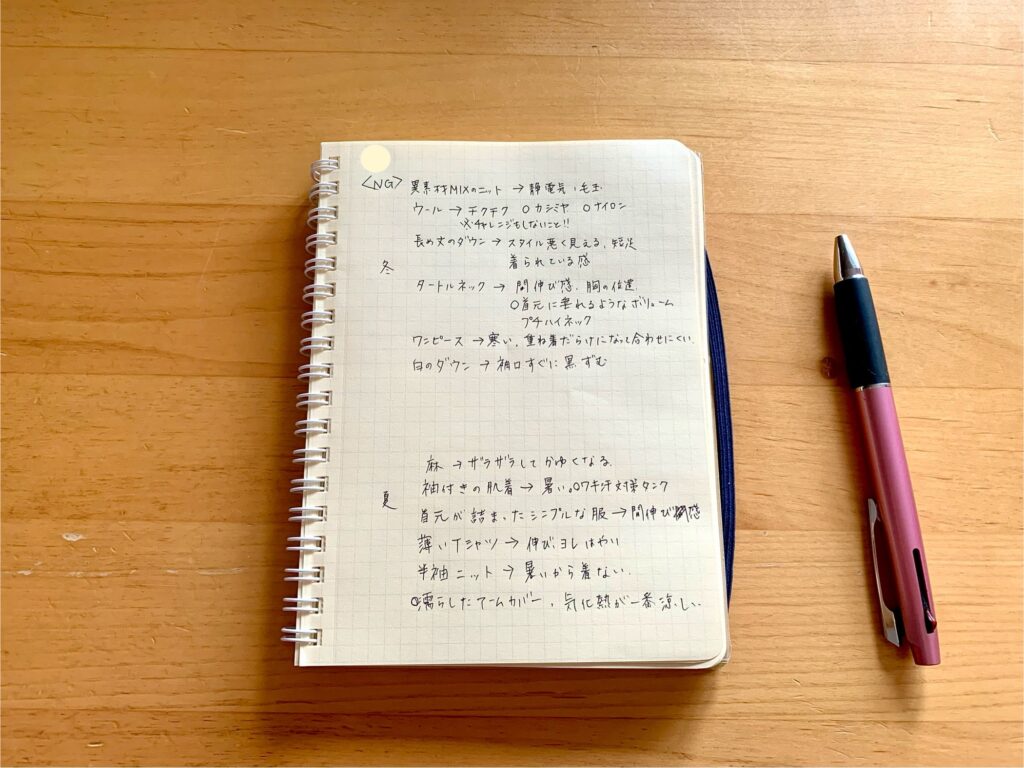 <NG> 異素材MIXのニット → 静電気、毛玉
ウール → チクチク ○カシミヤ ○ナイロン
※チャレンジもしないこと!!
長め丈のダウン → スタイル悪く見える、短足
着られている感
冬
タートルネック → 間伸び感、胸の位置
○首元に垂れるようなボリューム
プチハイネック
ワンピース → 寒い、重ね着だらけになって合わせにくい。
白のダウン → 袖口すぐに黒ずむ
麻 → ザラザラしてかゆくなる。
袖付きの肌着 → 暑い。○ワキ汗対策タンク
夏
首元が詰まったシンプルな服 → 間伸び感
薄いTシャツ → 伸び、ヨレはやい
半袖ニット → 暑いから着ない。
○濡らしたアームカバー、気化熱が一番涼しい。